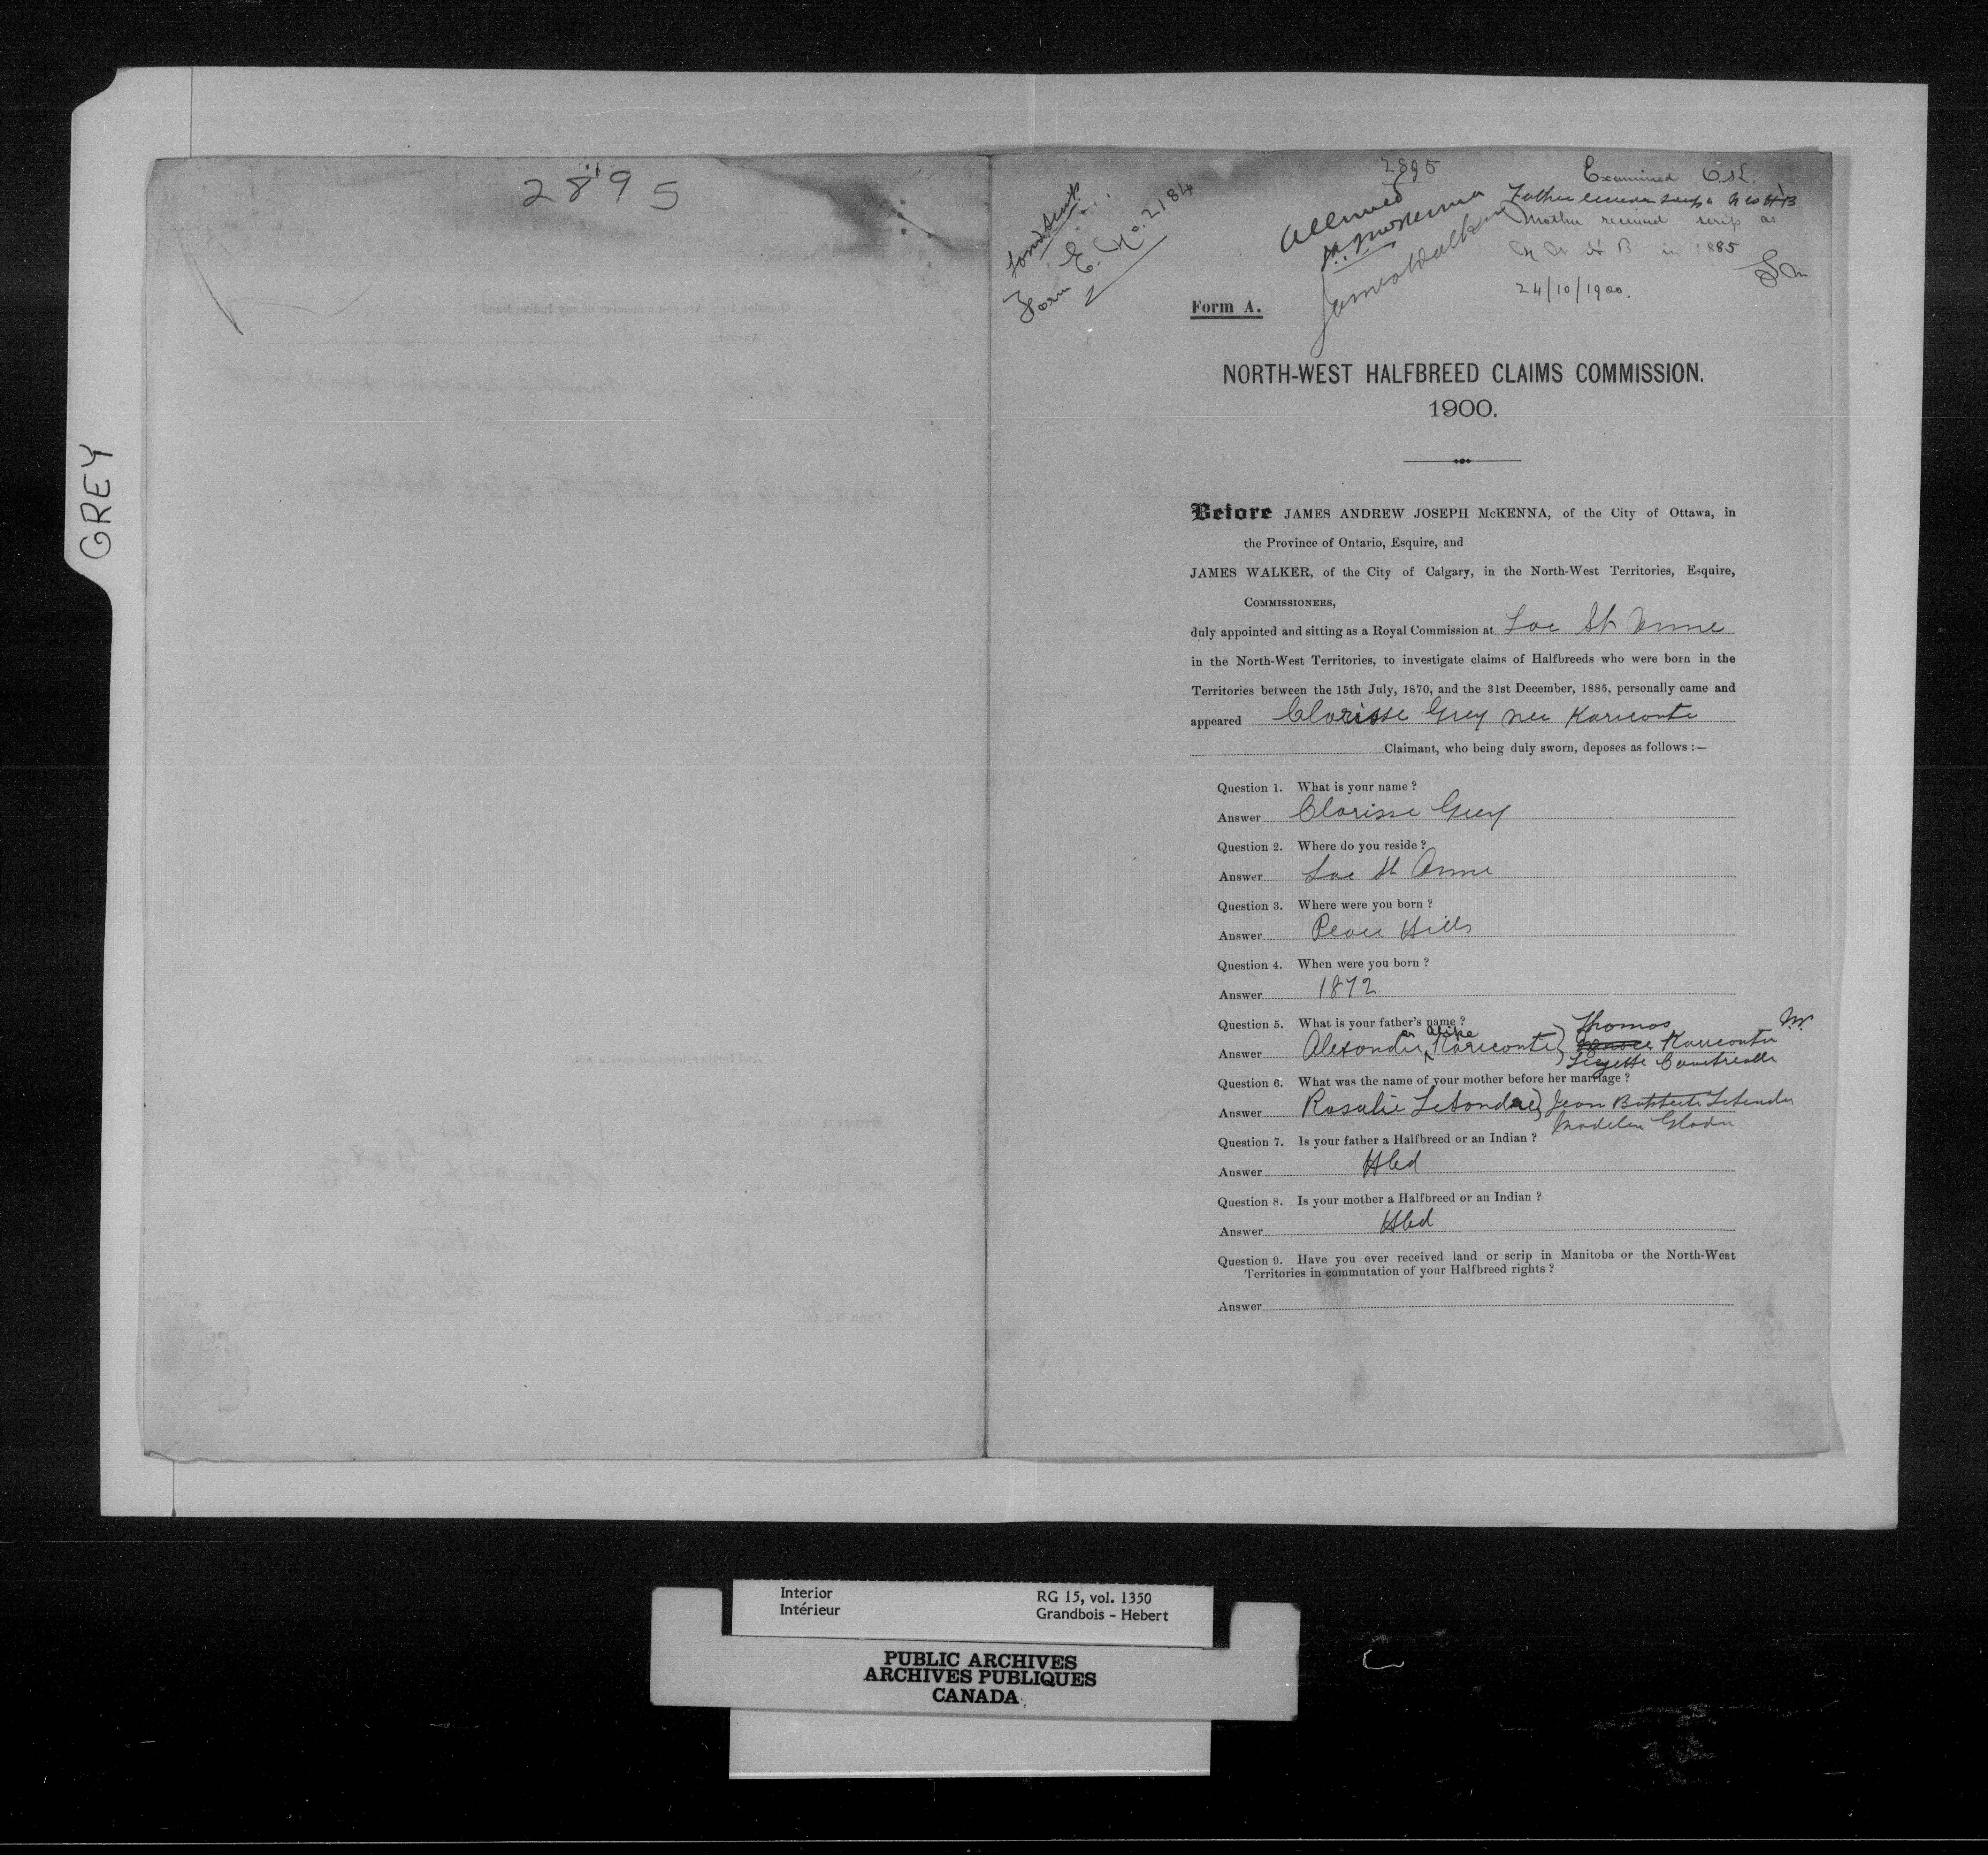 GREY
2895
2895
Land Scrip
Form E. No. 2184
Allowed
J.A.J. McKenna
James Walker
Examined
Father received scrip as N W H B
Mother received scrip as
N W H B in 1885
24/10/1900.
Form A.
NORTH-WEST HALFBREED CLAIMS COMMISSION.
1900.
Before JAMES ANDREW JOSEPH McKENNA, of the City of Ottawa, in
the Province of Ontario, Esquire, and
JAMES WALKER, of the City of Calgary, in the North-West Territories, Esquire,
COMMISSIONERS,
duly appointed and sitting as a Royal Commission at Lac St Anne
in the North-West Territories, to investigate claims of Halfbreeds who were born in the
Territories between the 15th July, 1870, and the 31st December, 1885, personally came and
appeared Clarisse Grey nee Kareconte
Claimant, who being duly sworn, deposes as follows :—
Question 1. What is your name ?
Answer Clarisse Grey
Question 2. Where do you reside ?
Answer Lac St Anne
Question 3. Where were you born ?
Answer Peace Hills
Question 4. When were you born ?
Answer 1872
Question 5. What is your father's name ?
Answer Alexander or Alike Kareconte) Thomas Kareconte
Question 6. What was the name of your mother before her marriage ?
Answer Rosalie Letondre) Jean Baptiste Letendre
Madelen Gladu
Question 7. Is your father a Halfbreed or an Indian ?
Answer Hbd
Question 8. Is your mother a Halfbreed or an Indian ?
Answer Hbd
Question 9. Have you ever received land or scrip in Manitoba or the North-West
Territories in commutation of your Halfbreed rights ?
Answer
Interior
Intérieur
RG 15, vol. 1350
Grandbois - Hebert
PUBLIC ARCHIVES
ARCHIVES PUBLIQUES
CANADA